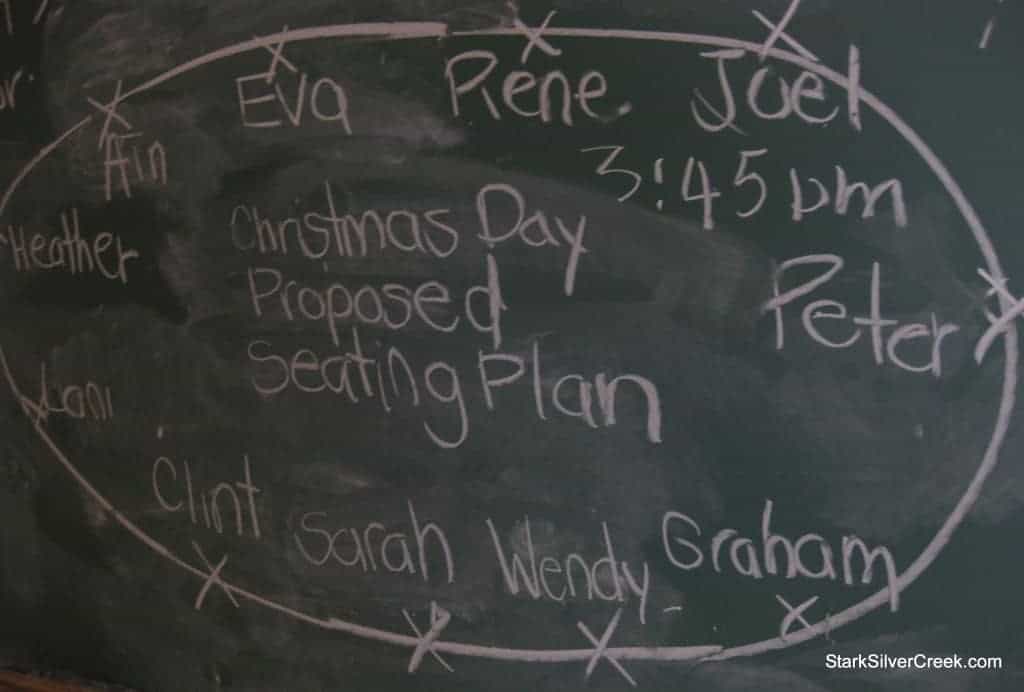 Eva Rene Joel
Ain
3:45 pm
Heather
Christmas Day
Proposed
Seating Plan
Peter
Lani
Clint Sarah Wendy Graham
StarkSilverCreek.com